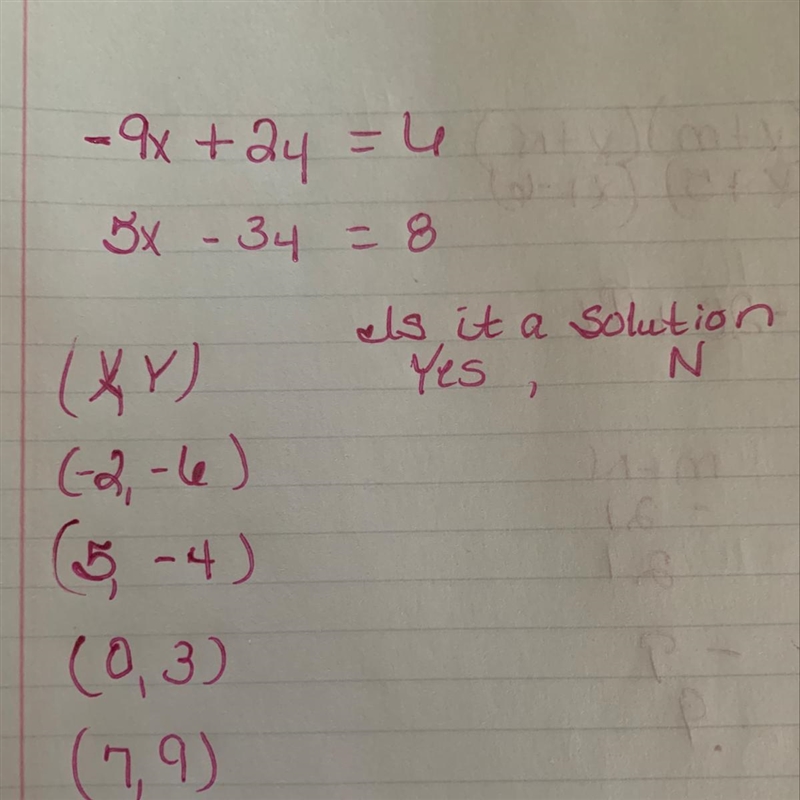 -9x + 2y = 6
5x - 3y = 8
Is it a solution
(X, Y) Yes, N
(-2, -6)
(5, -4)
(0, 3)
(7, 9)